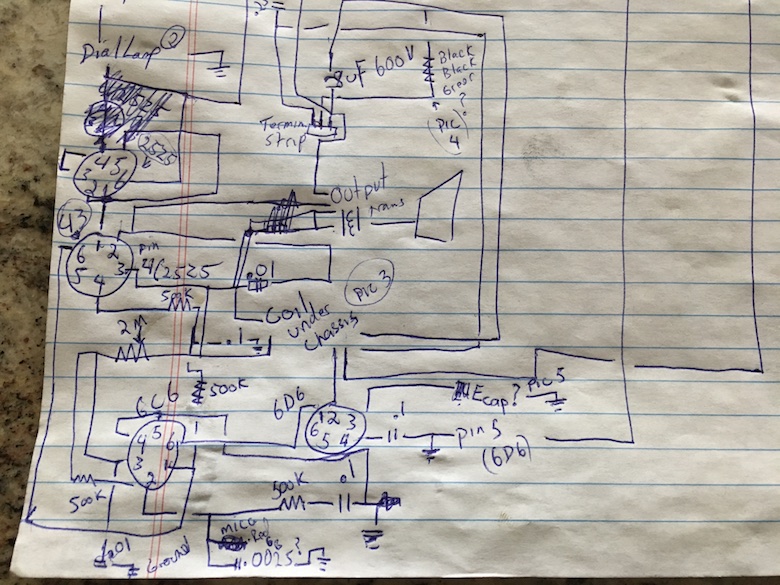 .2
Dial Lamp 2
8 uF 600V
Black
Black
Green
?
(PIC
4)
Termin
Strip
2525
4 5
3 1
2
Output
trans
43
6 1 2
5 3
4
pin
4(2525
.01
PIC 3
500K
Coil
under
chassis
2M
.1
500K
6C6
6D6
E cap?
PIC 5
1 2 3
6 5 4
.1
pin 5
(6D6)
5
4 6
3 1
2
500K
500K
.1
mica
.0025?
.01
Ground